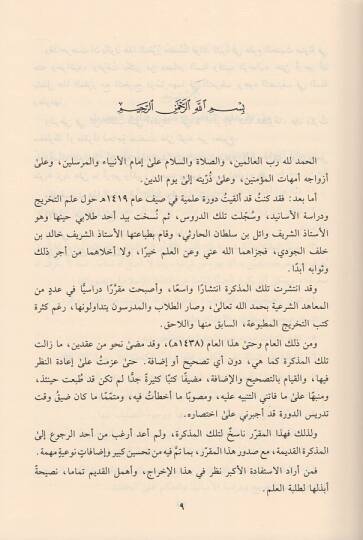 بِسْمِ اللَّهِ الرَّحْمَنِ الرَّحِيمِ
الحمد لله رب العالمين، والصلاة والسلام علىٰ إمام الأنبياء والمرسلين، وعلىٰ
أزواجه أمهات المؤمنين، وعلىٰ ذُرِّيته إلىٰ يوم الدين.
أما بعد: فقد كنتُ قد ألقيتُ دورة علمية في صيف عام ١٤١٩هـ حول علم التخريج
ودراسة الأسانيد، وسُجِّلت تلك الدروس، ثم نُسخت بيد أحد طلابي حينها وهو
الأستاذ الشريف وائل بن سلطان الحارثي، وقام بطباعتها الأستاذ الشريف خالد بن
خلف الجودي، فجزاهما الله عني وعن العلم خيرًا، ولا أخلاهما من أجر ذلك
وثوابه أبدًا.
وقد انتشرت تلك المذكرة انتشارًا واسعًا، وأصبحت مقرَّرًا دراسيًّا في عددٍ من
المعاهد الشرعية بحمد الله تعالىٰ، وصار الطلاب والمدرسون يتداولونها، رغم كثرة
كتب التخريج المطبوعة، السابق منها واللاحق.
ومن ذلك العام وحتىٰ هذا العام (١٤٣٨هـ)، وقد مضىٰ نحو من عقدين، ما زالت
تلك المذكرة كما هي، دون أي تصحيح أو إضافة. حتىٰ عزمتُ علىٰ إعادة النظر
فيها، والقيام بالتصحيح والإضافة، مضيفًا كتبًا كثيرةً جدًّا لم تكن قد طُبعت حينئذ،
ومنبهًا علىٰ ما فاتني التنبيه عليه، ومصوبًا ما أخطأتُ فيه، ومتمِّمًا ما كان ضيقُ وقت
تدريس الدورة قد أجبرني علىٰ اختصاره.
ولذلك فهذا المقرّر ناسخٌ لتلك المذكرة، ولم أعد أرغب من أحد الرجوع إلىٰ
المذكرة القديمة، مع صدور هذا المقرّر، بما تمَّ فيه من تحسين كبير وإضافاتٍ نوعيةٍ مهمة.
فمن أراد الاستفادة الأكبر نظر في هذا الإخراج، وأهمل القديم تماما، نصيحةً
أبذلها لطلبة العلم.
٩